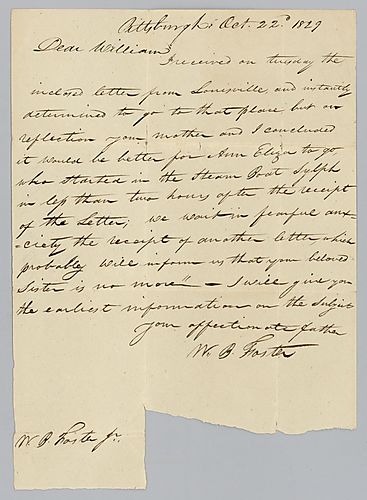 Pittsburgh Oct. 22d 1829
Dear William
I received on tuesday the
inclosed letter from Louisville, and instantly
determined to go to that place but on
reflection your mother and I concluded
it would be better for Ann Eliza to go,
who started in the Steam Boat Sylph
in less than two hours after the receipt
of the Letter; we wait in fearful anx-
-iety the receipt of another letter which
probably will inform us that your beloved
Sister is no more" — I will give you
the earliest information on the subject
your affectionate father
W. B. Foster
W. B. Foster Jr.